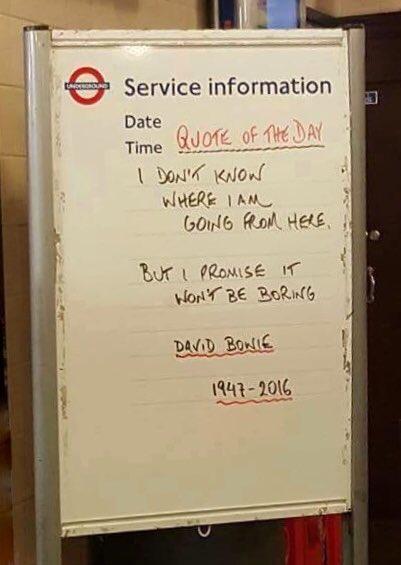 UNDERGROUND
Service information
Date
Time QUOTE OF THE DAY
I DON'T KNOW
WHERE I AM
GOING FROM HERE.
BUT I PROMISE IT
WON'T BE BORING
DAVID BOWIE
1947-2016